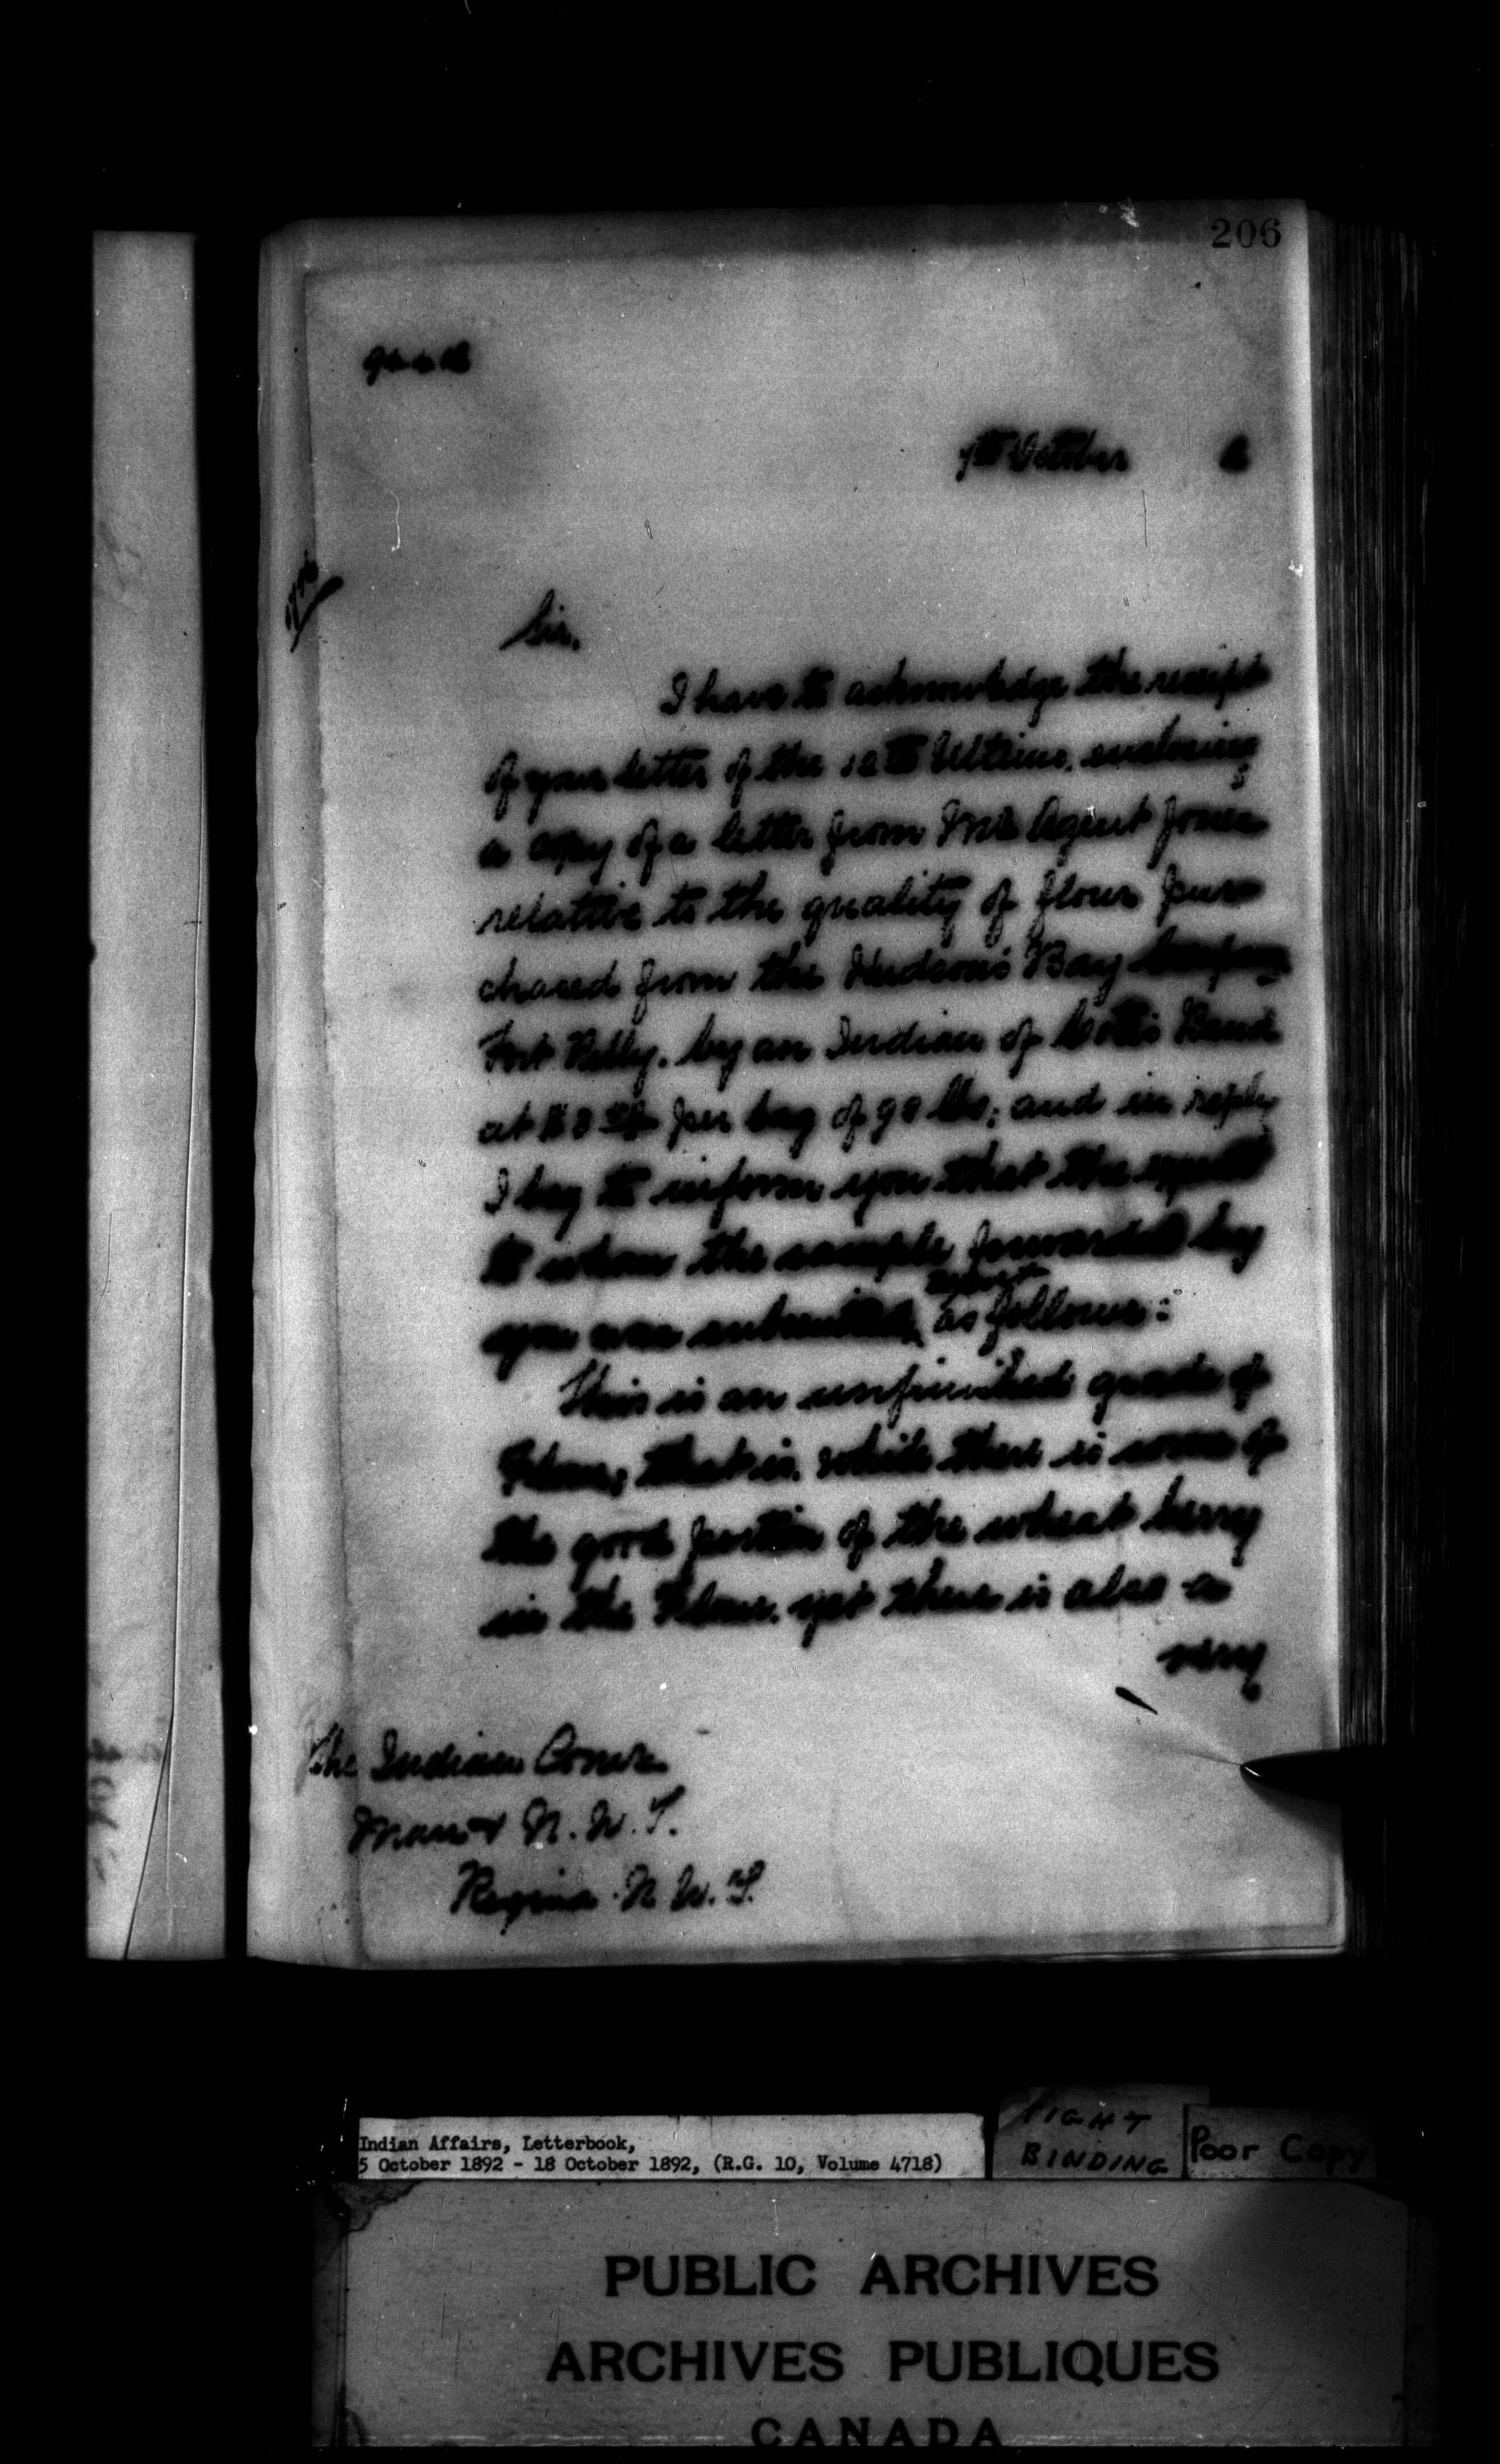 206
7th October 2
Sir,
I have to acknowledge the receipt
of your letter of the 12th Ultimo, enclosing
a copy of a letter from Mr Agent Jones
relative to the quality of flour pur
chased from the Hudson's Bay Company
Fort Pelly, by an Indian of Cote's Band
at $3 per bag of 98 lbs; and in reply
I beg to inform you that the expert
to whom the sample forwarded by
report
you was submitted, as follows:
This is an unfinished grade of
Flour; that is, while there is some of
the good portion of the wheat berry
in the Flour, yet there is also a
very
The Indian Comr.
Man & N.W.T.
Regina N.W.T.
Indian Affairs, Letterbook,
5 October 1892 - 18 October 1892, (R.G. 10, Volume 4718)
TIGHT
BINDING
Poor Copy
PUBLIC ARCHIVES
ARCHIVES PUBLIQUES
CANADA